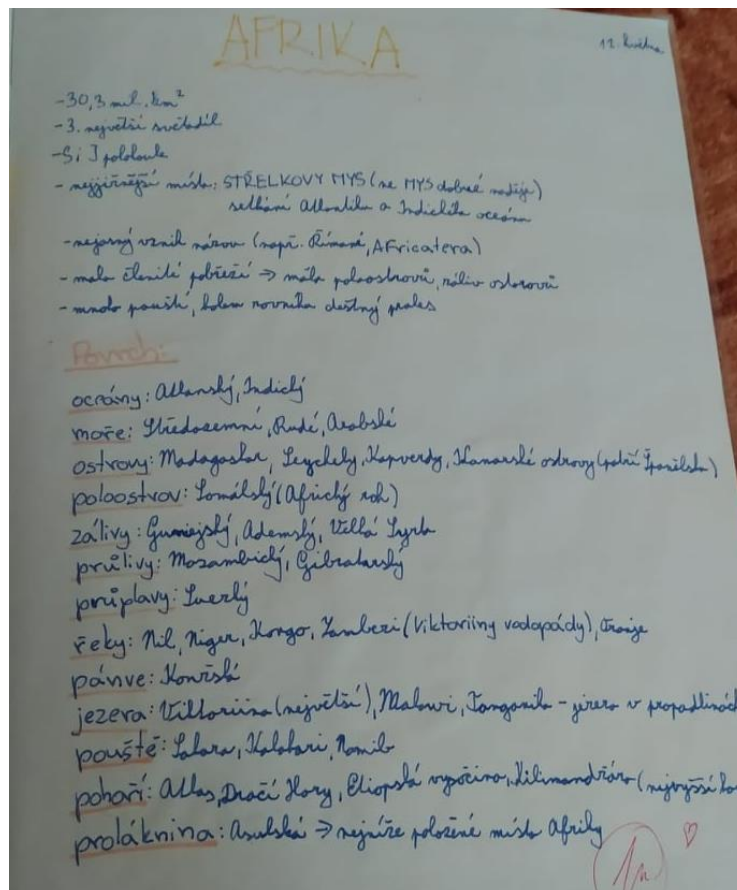 AFRIKA
12. května
-30,3 mil. km²
-3. největší světadíl
-S i J polokoule
- nejjižnější místo: STŘELKOVY MYS (ne MYS dobré naděje)
setkání Atlantiku a Indického oceánu
-nejasný vznik názvu (např. Římané, AFricatera)
- málo členité pobřeží => málo poloostrovů, zálivů ostrovů
- mnoho pouští, kolem rovníku deštný prales
Povrch:
oceány: Atlanský, Indický
moře: Středozemní, Rudé, Arabské
ostrovy: Madagaskar, Seychely, Kapverdy, Kanarské ostrovy (patří Španělsku)
poloostrov: Somálský (Africký roh)
zálivy: Guinejský, Ademský, Velká Syrta
průlivy: Mozambický, Gibraltarský
průplavy: Suezký
řeky: Nil, Niger, Kongo, Zambezi (Viktoriiny vodopády), Oranje
pánve: Konžská
jezera: Viktoriino (největší), Malawi, Tanganika - jezera v propadlinách
pouště: Sahara, Kalahari, Namib
pohoří: Atlas, Dračí Hory, Etiopská vysočina, Kilimandžáro (nejvyšší
proláknina: Asalská => nejníže položené místo Afriky